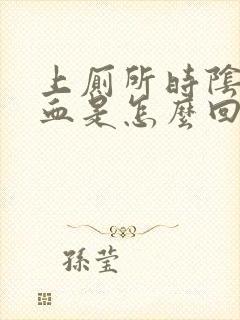 上厕所時陰
血是怎麼回
孫莹